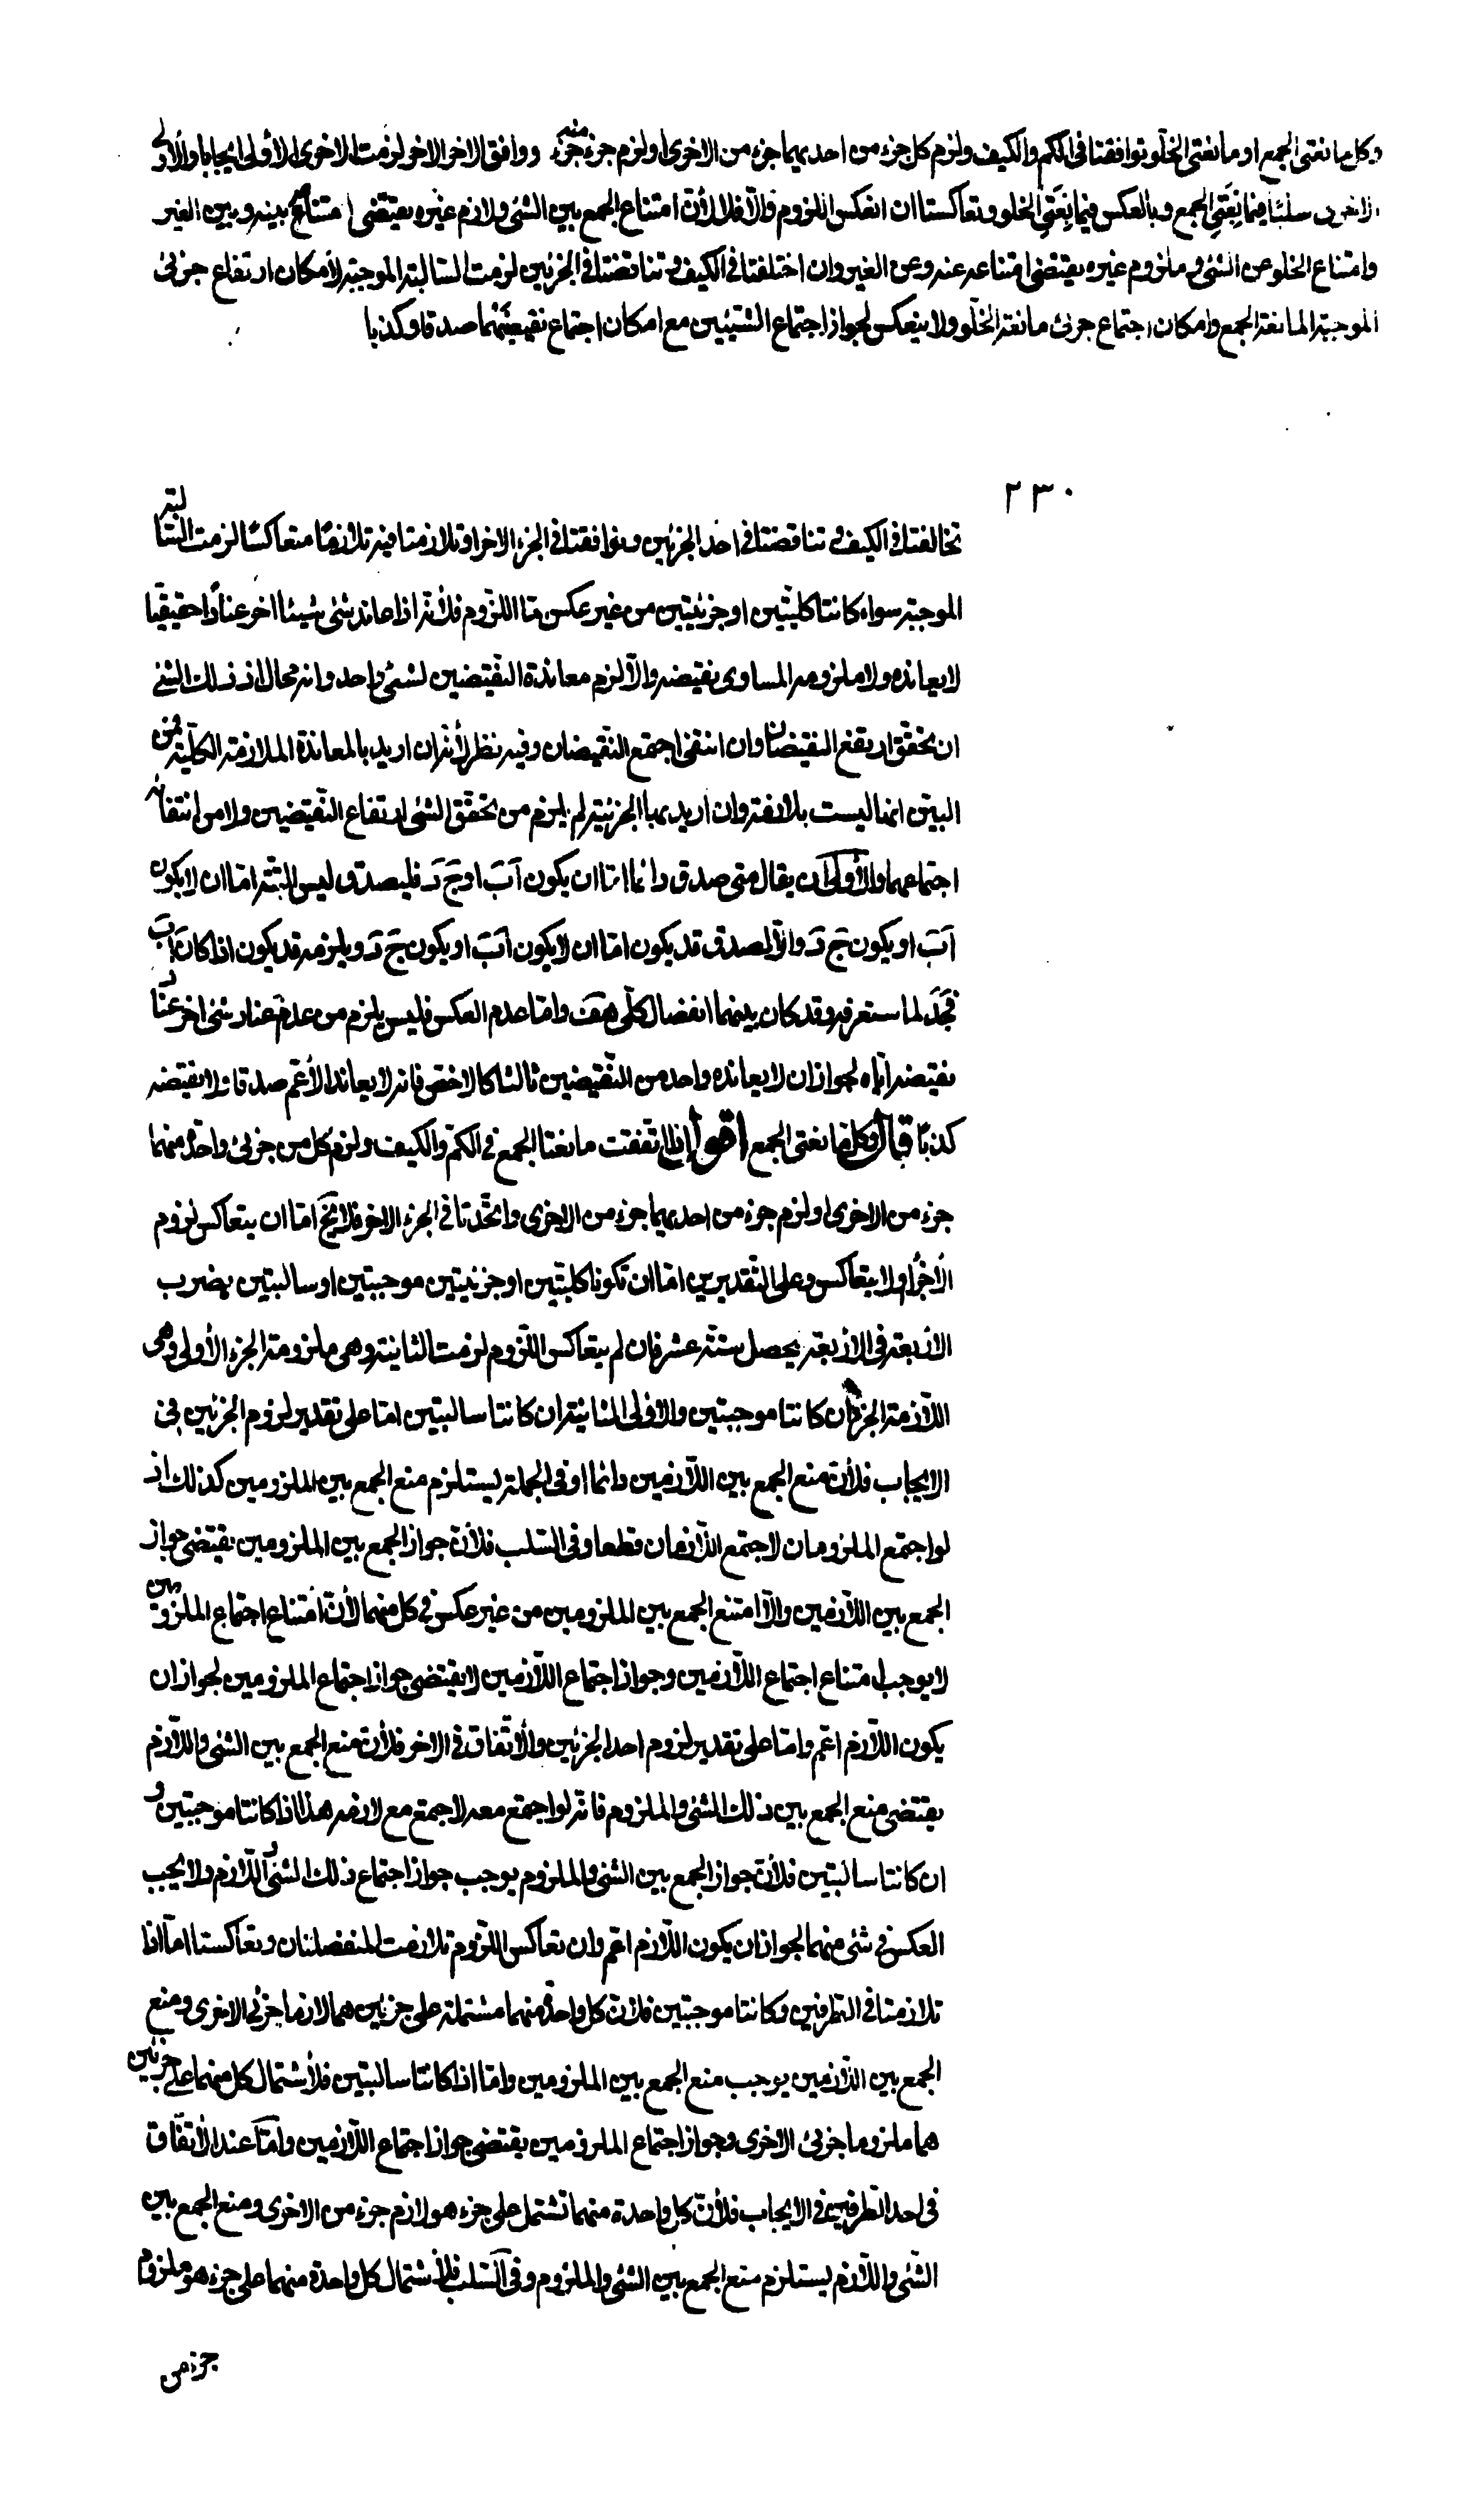 وكل مانعتى الجمع او مانعتى الخلو توافقتا فى الكم والكيف ولزم كل جزء من احديهما جزء من الاخرى او لزم جزء منه جزء ووافق الاخر الاخر لزمت الاخرى الاولى ايجابا والاولى
الاخرى سلبًا فيما نعتى الجمع وبالعكس فيما نعتى الخلو وتعاكستا ان انعكس اللزوم والا فلا لأن امتناع الجمع بين الشئ ولازم غيره يقتضى امتناعه بينه وبين الغير
وامتناع الخلو عن الشئ وملزوم غيره يقتضى امتناعه عنه وعن الغير وان اختلفتا فى الكيف وتناقضتا فى الجزئين لزمت السالبة الموجبة لامكان ارتفاع جزئى
الموجبة المانعة الجمع وامكان اجتماع جزئى مانعة الخلو ولا ينعكس لجواز اجتماع الشيئين مع امكان اجتماع نقيضيهما صدقا وكذبا
٢٣٠
تخالفتا فى الكيف وتناقضتا فى احد الجزئين وتوافقتا فى الجزء الاخر او تلازمتا فيه تلازمًا متعاكسًا لزمت السالبة
الموجبة سواء كانتا كليتين او جزئيتين من غير عكس اما اللزوم فلأنه اذا عاند شئ شيئا اخر عنادًا حقيقيا
لا يعانده ولا ملزومه المساوى نقيضه والا لزم معاندة النقيضين لشئ واحد وانه محال اذ ذلك الشئ
ان تحقق ارتفع النقيضان وان انتفى اجتمع النقيضان وفيه نظر لأنه ان اريد بالمعاندة الملازمة الكلية فمن
البين انها ليست بلازمة وان اريد بها الجزئية لم يلزم من تحقق الشئ ارتفاع النقيضين ولا من انتفائه
اجتماعهما والأولى ان يقال متى صدق دائما اما ان يكون اَبَ او جَ دَ فليصدق ليس البتة اما ان لا يكون
اَبَ او يكون جَ دَ والا لصدق قد يكون اما ان لا يكون اَبَ او يكون جَ دَ ويلزمه قد يكون اذا كان اَبَ
فجَدَ لما ستعرفه وقد كان بينهما انفصال كلى هف واما عدم العكس فليس يلزم من عدم عناد شئ اخر عناد
نقيضه اياه لجواز ان لا يعانده واحد من النقيضين ثالثا كالاخص فانه لا يعاند الأعم صدقا ولا نقيضه
كذبًا قال وكل مانعتى الجمع اقول اذا اتفقت مانعتا الجمع فى الكم والكيف ولزم كل من جزئى واحدة منهما
جزء من الاخرى او لزم جزء من احديهما جزء من الاخرى واتحدتا فى الجزء الاخر فلا يخ اما ان يتعاكس لزوم
الأجزاء اولا يتعاكس وعلى التقديرين اما ان تكونا كليتين او جزئيتين موجبتين او سالبتين بضرب
الأربعة فى الأربعة يحصل ستة عشر فان لم يتعاكس اللزوم لزمت الثانية وهى ملزومة الجزء الأولى وهى
اللازمة الجزء ان كانتا موجبتين والاولى الثانية ان كانتا سالبتين اما على تقدير لزوم الجزئين فى
الايجاب فلأن منع الجمع بين اللازمين دائما او فى الجملة يستلزم منع الجمع بين الملزومين كذلك اذ
لو اجتمع الملزومان لاجتمع اللازمان قطعا وفى السلب فلأن جواز الجمع بين الملزومين يقتضى جواز
الجمع بين اللازمين والا امتنع الجمع بين الملزومين من غير عكس فى كل منهما لأن امتناع اجتماع الملزومين
لا يوجب امتناع اجتماع اللازمين وجواز اجتماع اللازمين لا يقتضى جواز اجتماع الملزومين لجواز ان
يكون اللازم اعم واما على تقدير لزوم احد الجزئين والأتفاق فى الاخر فلأن منع الجمع بين الشئ واللازم
يقتضى منع الجمع بين ذلك الشئ والملزوم فانه لو اجتمع معه لاجتمع مع لازمه هذا اذا كانتا موجبتين و
ان كانتا سالبتين فلأن جواز الجمع بين الشئ والملزوم يوجب جواز اجتماع ذلك الشئ واللازم ولا يجب
العكس فى شئ منهما لجواز ان يكون اللازم اعم وان تعاكس اللزوم تلازمت المنفصلتان وتعاكستا اما اذا
تلازمتا فى الطرفين وكانتا موجبتين فلان كل واحدة منهما مشتملة على جزئين هما لازما جزئى الاخرى ومنع
الجمع بين اللازمين يوجب منع الجمع بين الملزومين واما اذا كانتا سالبتين فلأشتمال كل منهما على جزئين
هما ملزوما جزئى الاخرى وجواز اجتماع الملزومين يقتضى جواز اجتماع اللازمين واما عند الأتفاق
فى احد الطرفين فى الايجاب فلأن كل واحدة منهما تشتمل على جزء هو لازم جزء من الاخرى ومنع الجمع بين
الشئ واللازم يستلزم منع الجمع بين الشئ والملزوم وفى السلب فلأشتمال كل واحدة منهما على جزء هو ملزوم
جزء من